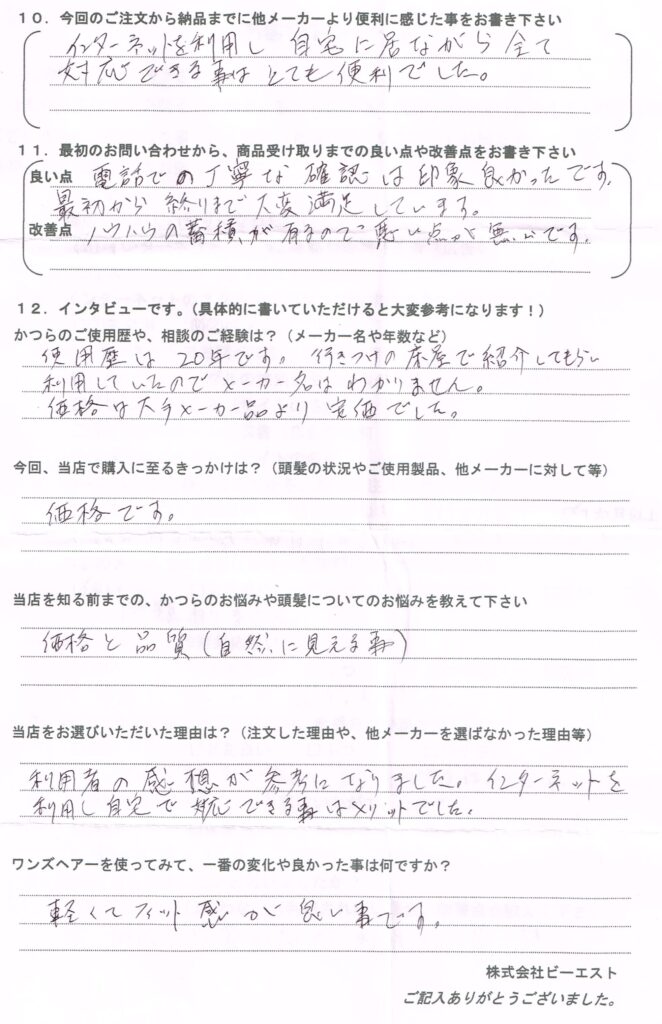 １０．今回のご注文から納品までに他メーカーより便利に感じた事をお書き下さい
インターネットを利用し 自宅に居ながら全て
対応できる事はとても便利でした。
１１．最初のお問い合わせから、商品受け取りまでの良い点や改善点をお書き下さい
良い点 電話での丁寧な確認は印象良かったです。
最初から終りまで大変満足しています。
改善点 ノウハウの蓄積が有るので悪い点が無いです。
１２．インタビューです。（具体的に書いていただけると大変参考になります！）
かつらのご使用歴や、相談のご経験は？（メーカー名や年数など）
使用歴は20年です。行きつけの床屋で紹介してもらい
利用していたのでメーカー名はわかりません。
価格は大手メーカー品より安価でした。
今回、当店で購入に至るきっかけは？（頭髪の状況やご使用製品、他メーカーに対して等）
価格です。
当店を知る前までの、かつらのお悩みや頭髪についてのお悩みを教えて下さい
価格と品質（自然に見える事）
当店をお選びいただいた理由は？（注文した理由や、他メーカーを選ばなかった理由等）
利用者の感想が参考になりました。インターネットを
利用し自宅で対応できる事はメリットでした。
ワンズヘアーを使ってみて、一番の変化や良かった事は何ですか？
軽くてフィット感が良い事です。
株式会社ビーエスト
ご記入ありがとうございました。